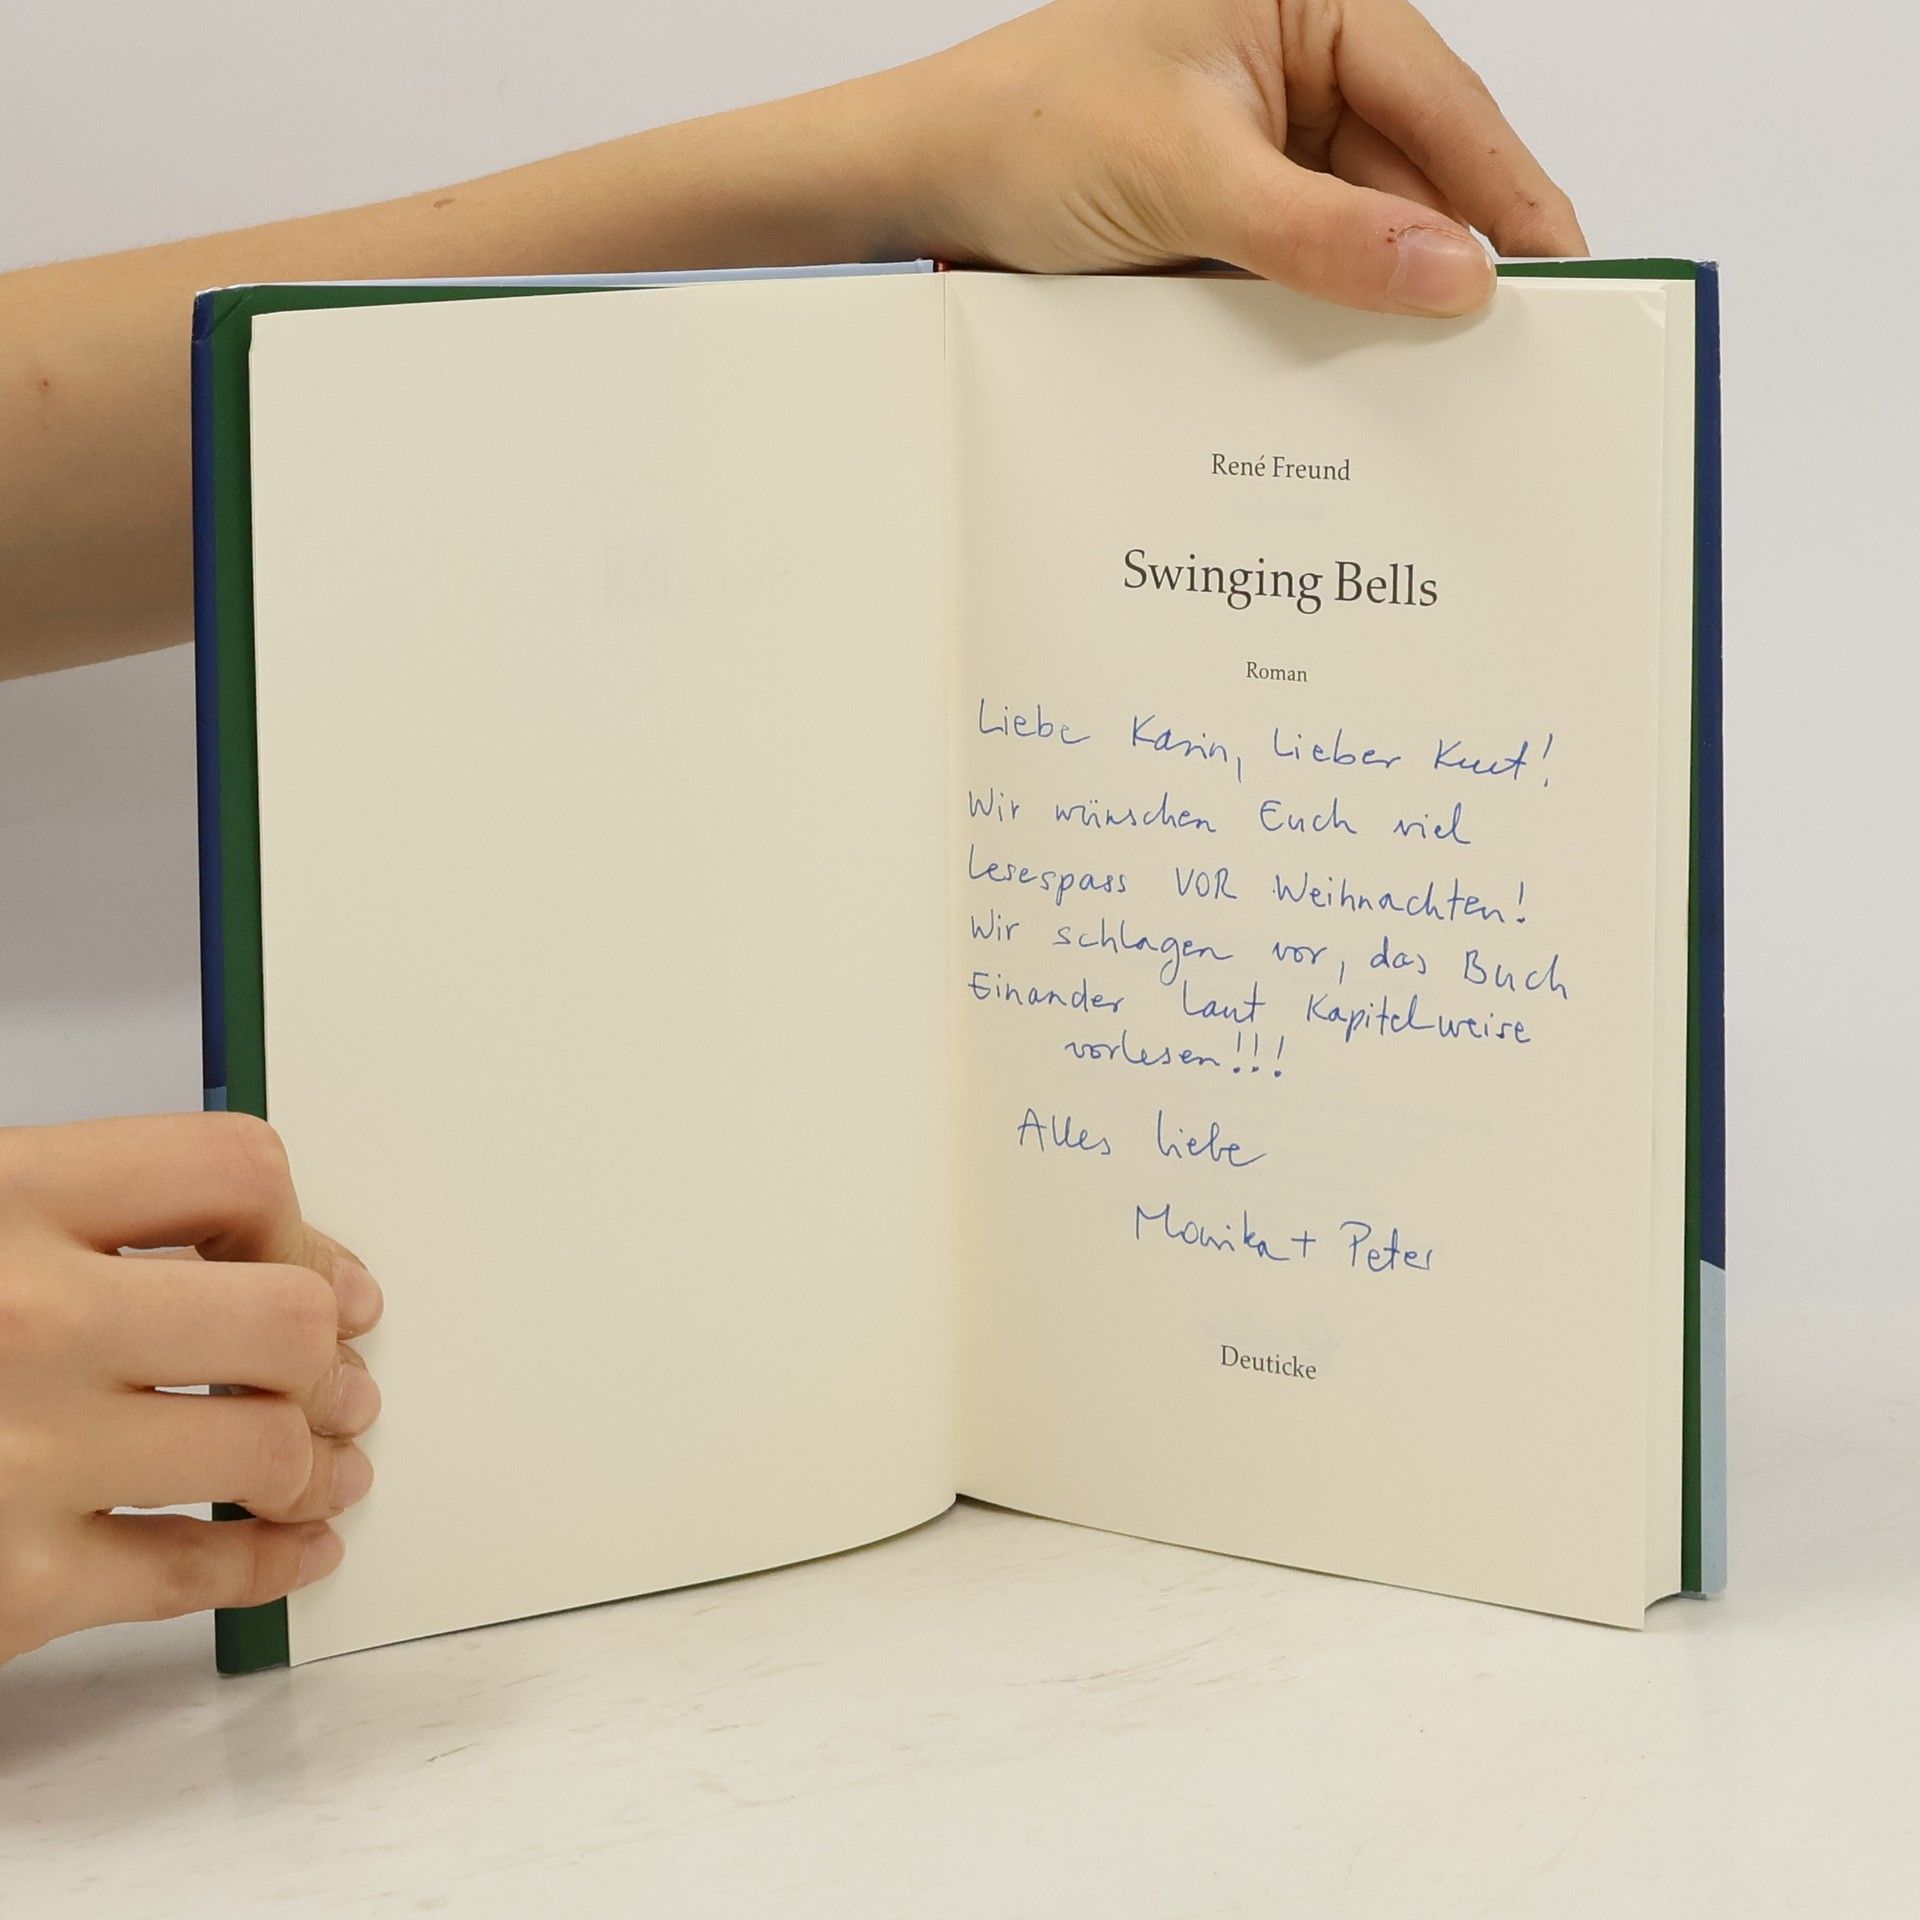 René Freund
Swinging Bells
Roman
Liebe Karin, Lieber Kurt!
Wir wünschen Euch viel
Lesespass VOR Weihnachten!
Wir schlagen vor, das Buch
Einander laut Kapitelweise
vorlesen!!!
Alles liebe
Monika + Peter
Deuticke